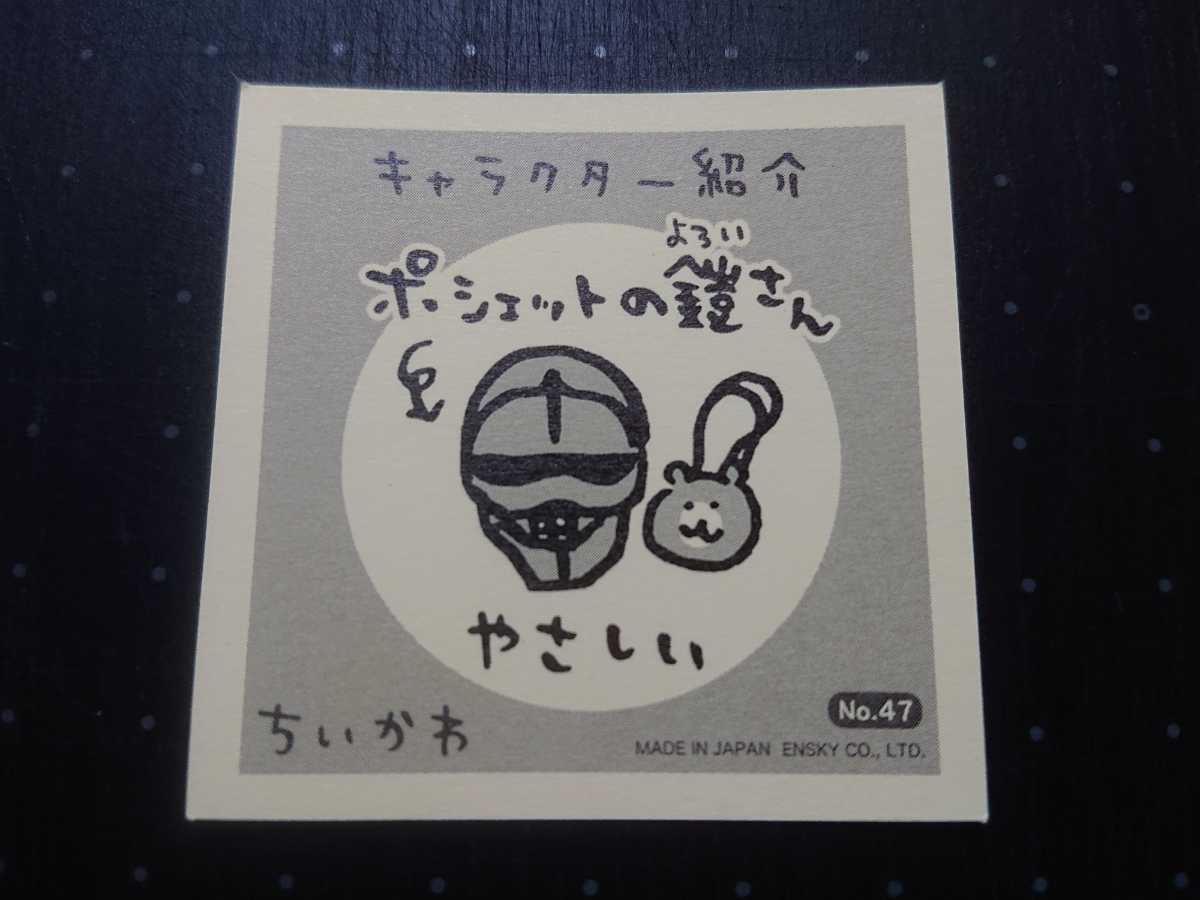 キャラクター紹介
よろい
ポシェットの鎧さん
やさしい
No.47
ちいかわ
MADE IN JAPAN ENSKY CO., LTD.